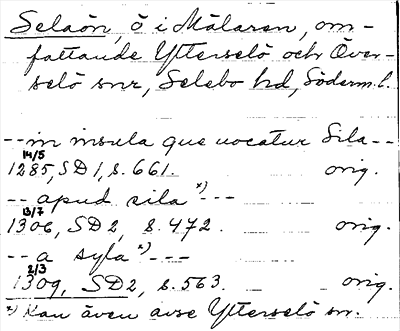 Selaön, ö i Mälaren, om-
fattande Ytterselö och Över-
selö snr, Selebo hd, Söderm.l.
--in insula que uocatur Sila--
14/5
1285, SD1, s. 661. orig.
--apud sila x)---
13/7
1306, SD2, s. 472. orig.
--a syla x)---
2/3
1309, SD2, s. 563. orig.
x) Kan även avse Ytterselö sn.